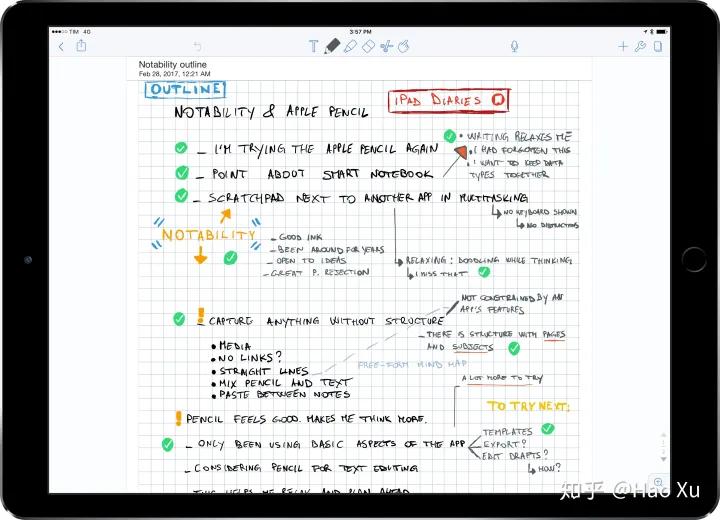 TIM 4G
3:57 PM
Notability outline
Feb 28, 2017, 12:21 AM
OUTLINE
iPAD DIARIES
NOTABILITY & APPLE PENCIL
- I'M TRYING THE APPLE PENCIL AGAIN
• WRITING RELAXES ME
• I HAD FORGOTTEN THIS
• I WANT TO KEEP DATA
TYPES TOGETHER
- POINT ABOUT START NOTEBOOK
- SCRATCHPAD NEXT TO ANOTHER APP IN MULTITASKING
NO KEYBOARD SHOWN
NO DISTRACTIONS
NOTABILITY
- GOOD INK
- BEEN AROUND FOR YEARS
- OPEN TO IDEAS
- GREAT P. REJECTION
RELAXING: DOODLING WHILE THINKING
I MISS THAT
! - CAPTURE ANYTHING WITHOUT STRUCTURE
NOT CONSTRAINED BY AN
APP'S FEATURES
- THERE IS STRUCTURE WITH PAGES
AND SUBJECTS
• MEDIA
• NO LINKS?
• STRAIGHT LINES
• MIX PENCIL AND TEXT
• PASTE BETWEEN NOTES
FREE-FORM MIND MAP
A LOT MORE TO TRY
TO TRY NEXT:
! PENCIL FEELS GOOD. MAKES ME THINK MORE.
- ONLY BEEN USING BASIC ASPECTS OF THE APP
TEMPLATES
EXPORT?
EDIT DRAFTS?
HOW?
- CONSIDERING PENCIL FOR TEXT EDITING
- THIS HELPS ME RELAX AND PLAN AHEAD
知乎 @Hao Xu